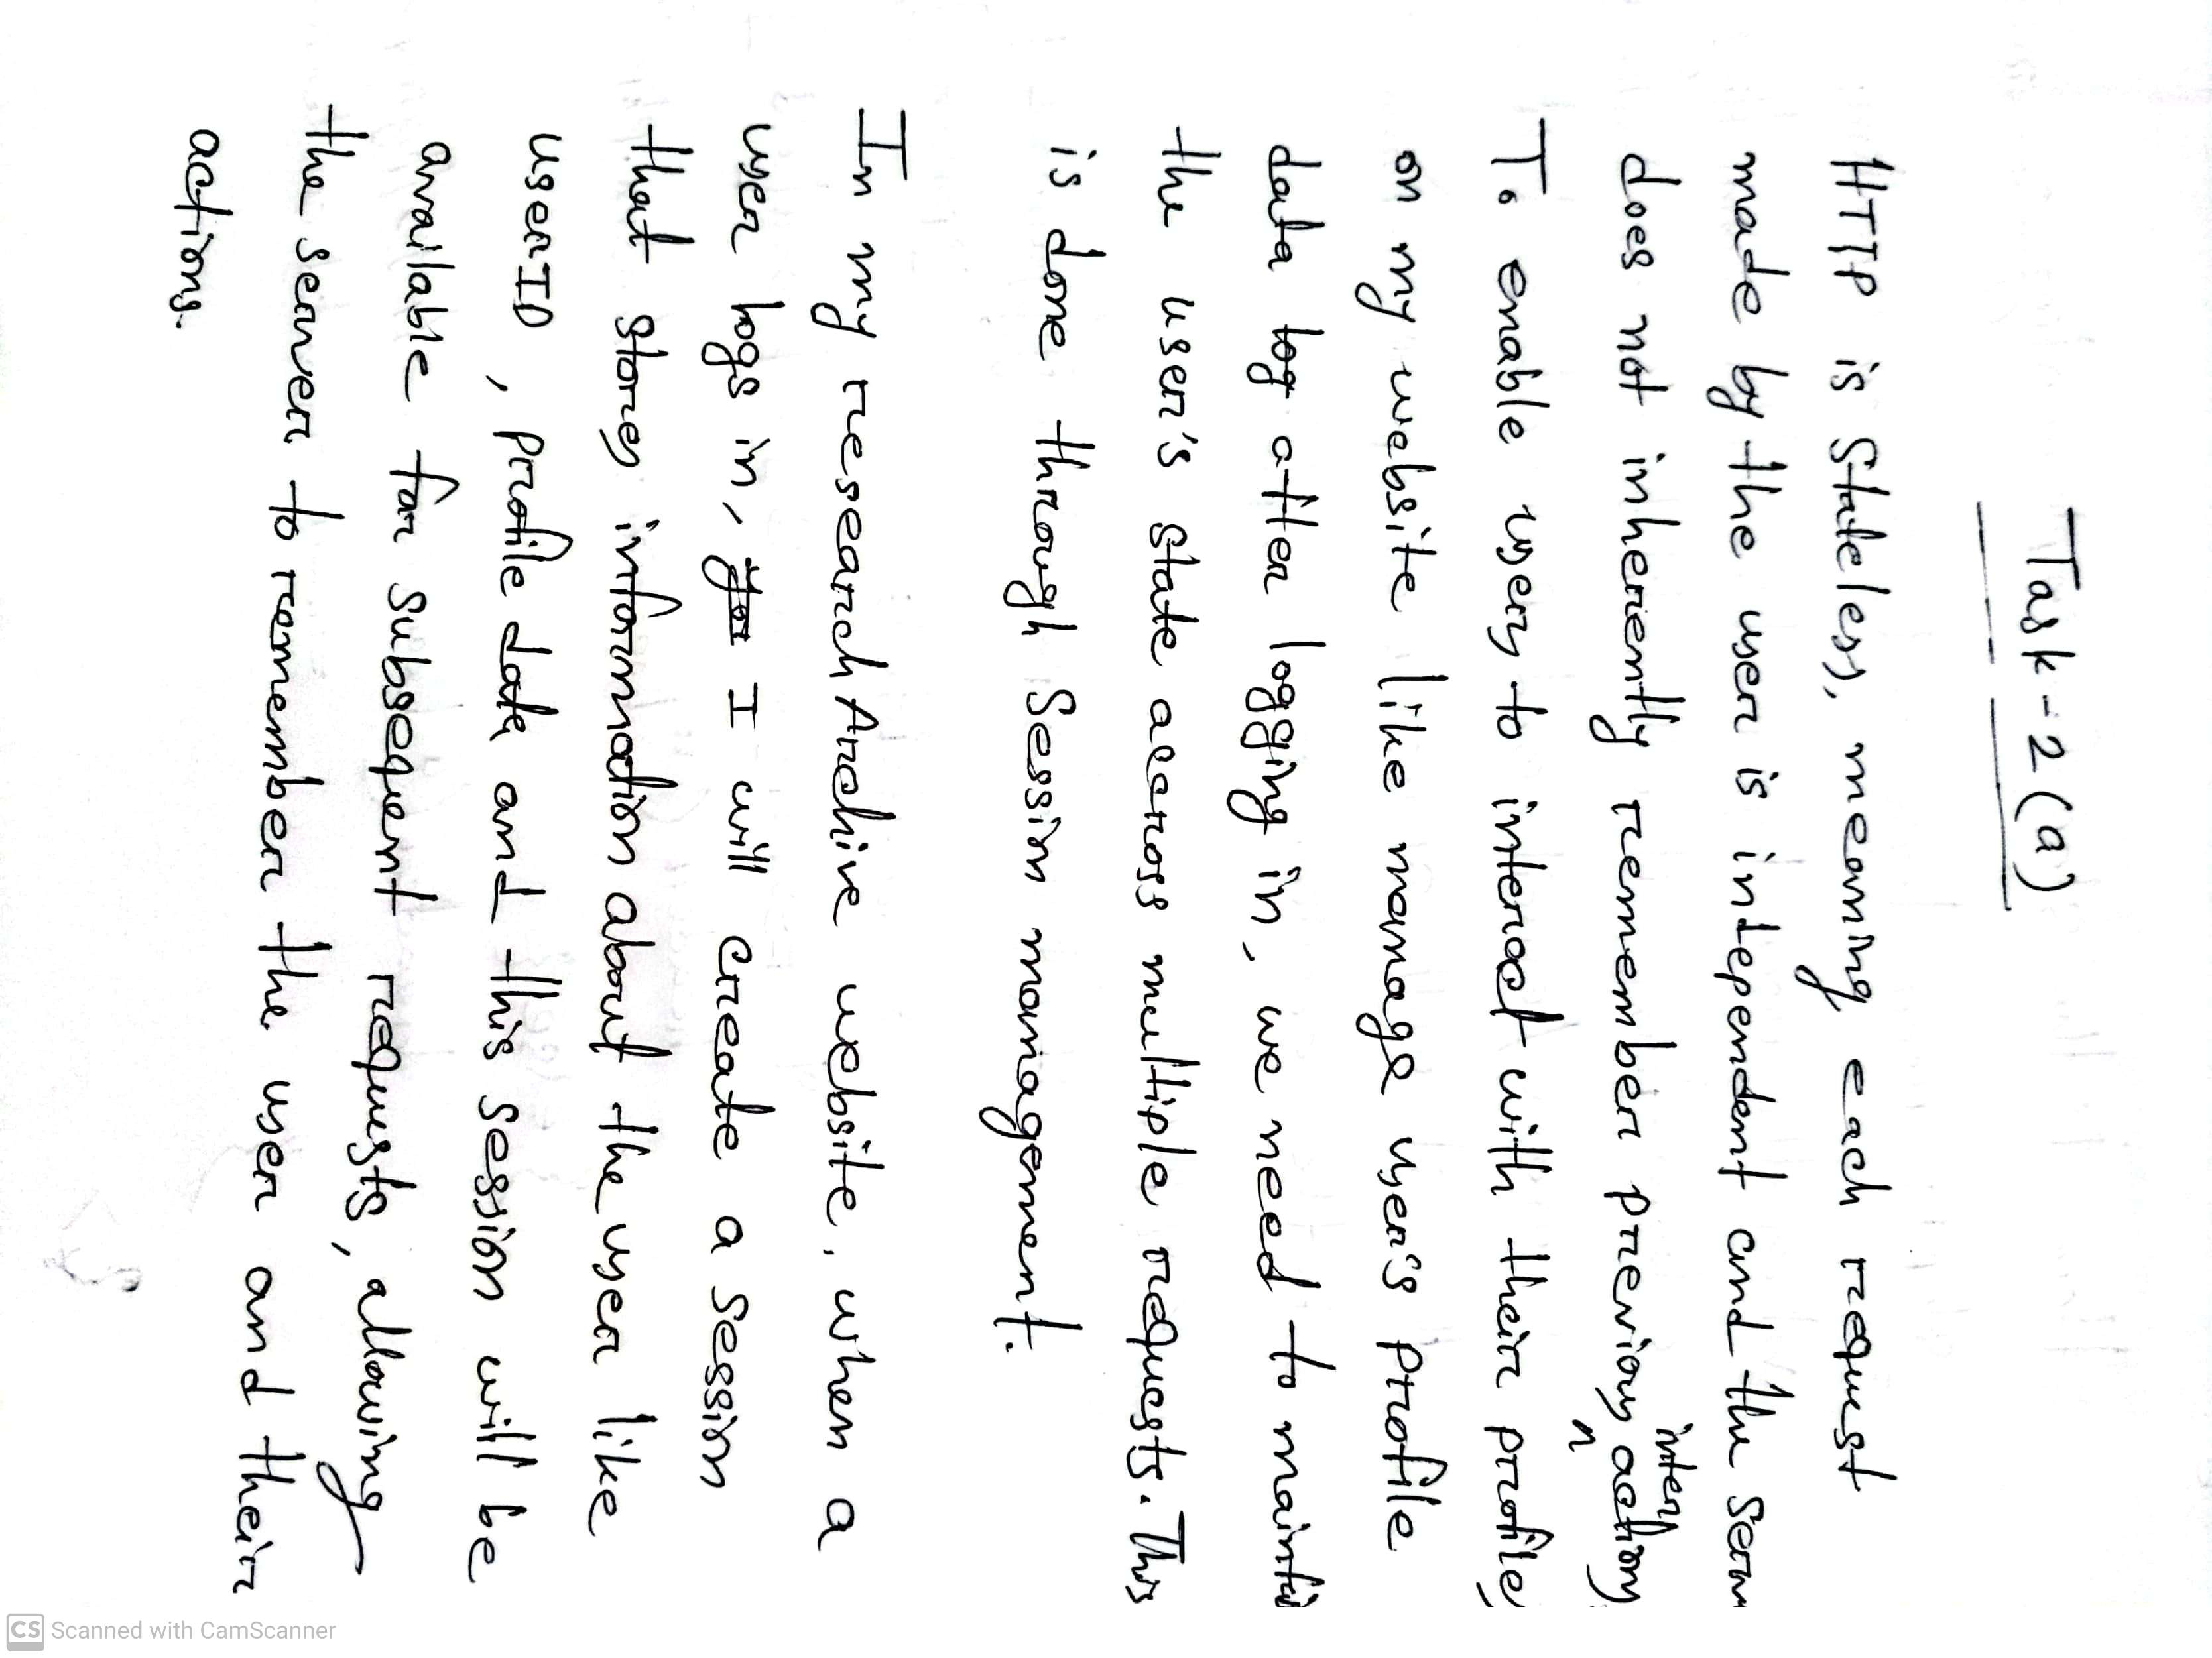 Task-2(a)
HTTP is Stateless, meaning each request
made by the user is independent and the Serv
does not inherently remember previous interactions
To enable users to interact with their profile,
on my website like manage user's profile
data log after logging in, we need to maintai
the user's state across multiple requests. This
is done through Session management.
In my research Archive website, when a
user logs in, I will create a Session
that stores information about the user like
userID, profile data and this session will be
available for subsequent requests, allowing
the server to remember the user and their
actions.
Scanned with CamScanner
CS